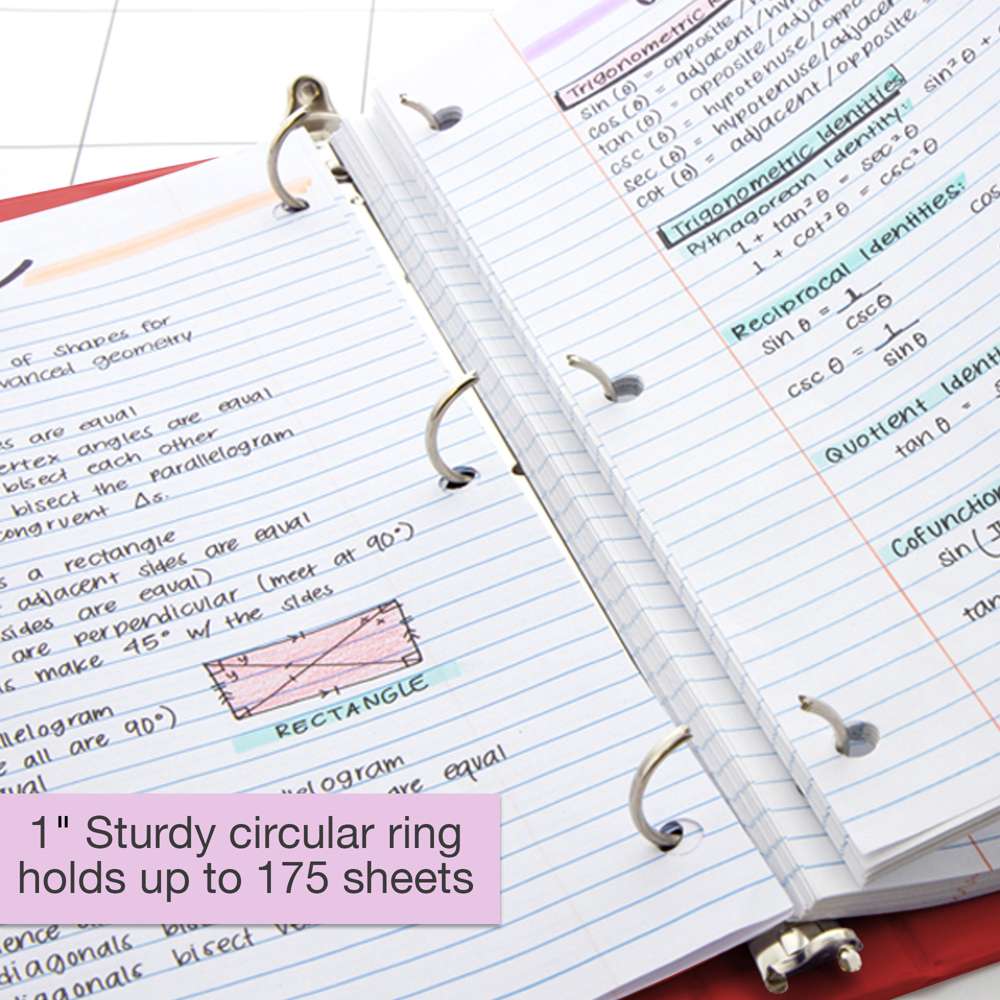 of shapes for
geometry
are equal
angles are equal
bisect each other
bisect the parallelogram
congruent Δs.
a rectangle
adjacent sides are equal
sides are equal)
are perpendicular (meet at 90°)
make 45° w/ the sides
y y x x
RECTANGLE
all are 90°)
are equal
1" Sturdy circular ring
holds up to 175 sheets
diagonals
diagonals bisect
Trigonometric
sin (θ) = opposite /
cos (θ) = adjacent/
tan (θ) = opposite/adjacent
csc (θ) = hypotenuse/
sec (θ) = hypotenuse/adjacent
cot (θ) = adjacent /opposite
Trigonometric Identities
Pythagorean Identity: sin²θ +
1 + tan²θ = sec²θ
1 + cot²θ = csc²θ
Reciprocal Identities:
sin θ = 1
cscθ
csc θ = 1
sinθ
Quotient
tan θ =
sin (
tan